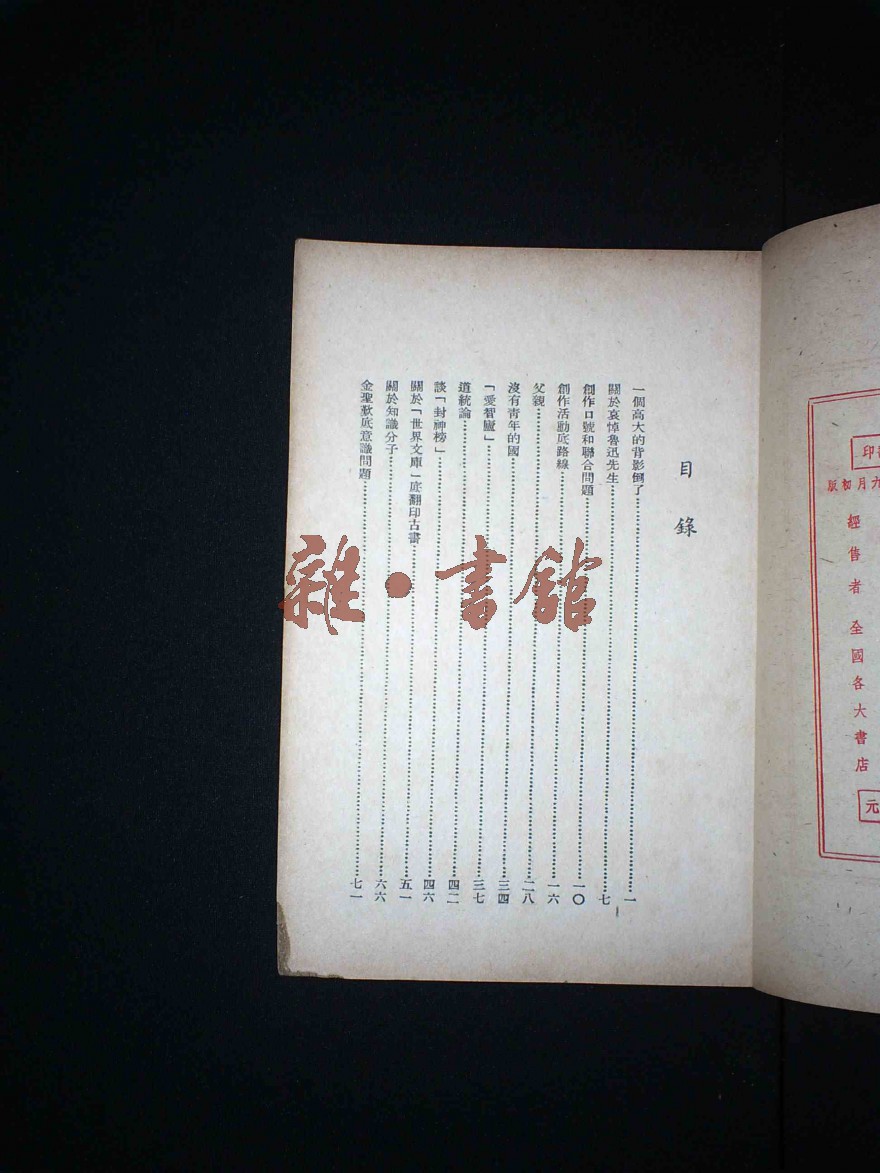 印
九月初版
經售者 全國各大書店
元
目錄
一個高大的背影倒了……一
關於哀悼魯迅先生……七
創作口號和聯合問題……一〇
創作活動底路線……一六
父親……二八
沒有青年的國……三四
「愛智廬」……三七
道統論……四二
談「封神榜」……四六
關於「世界文庫」底翻印古書……五一
關於知識分子……六六
金聖歎底意識問題……七一
雜·書館